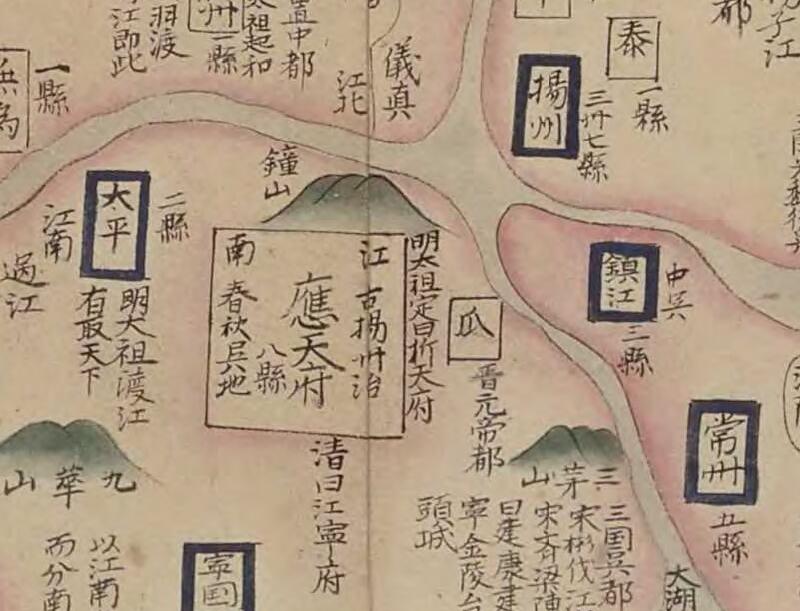 都
揚子江
泰
一縣
揚州
三州七縣
儀真
江北
置中都
太祖起和
州
一縣
羽渡
江即此
一縣
鐘山
二縣
太平
江南
過江
明太祖渡江
有取天下
明太祖定曰折天府
江南
古揚州治
應天府
八縣
春秋吳地
清曰江寧府
瓜
晋元帝都
鎮江
三縣
中吳
常州
五縣
三茅山
三国吳都
宋彬伐江
宋齊梁陳
曰建康建
寧金陵台
頭城
大湖
九華山
以江南
而分南
寧国